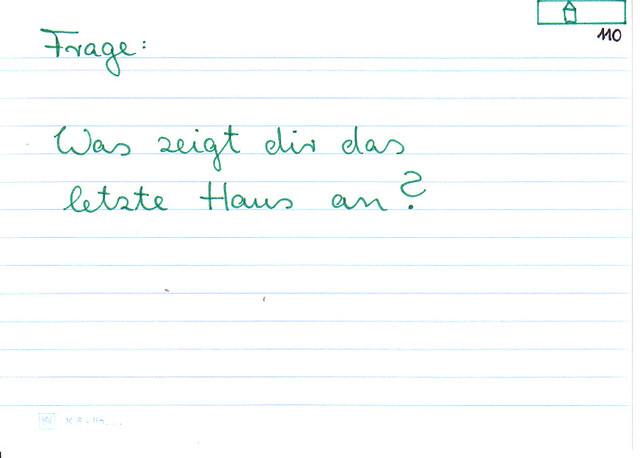 110
Frage:
Was zeigt dir das
letzte Haus an?